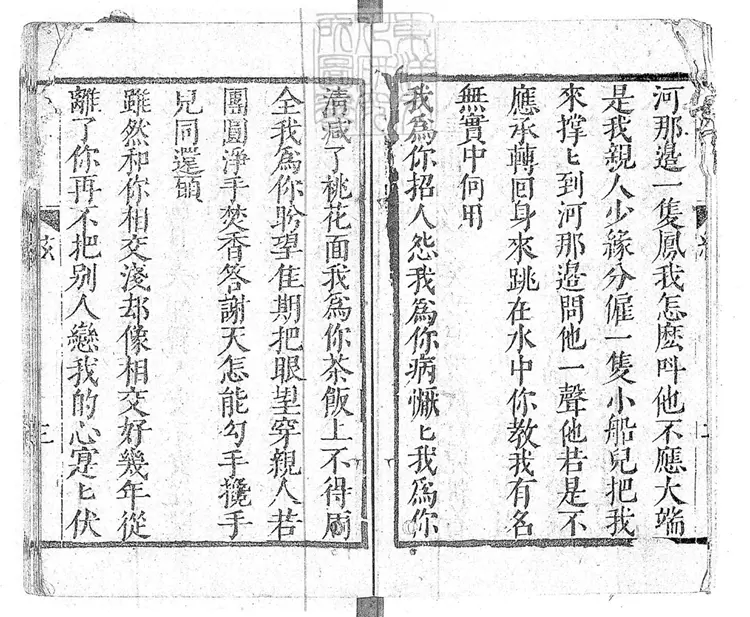 河那邊一隻鳳我怎麽呌他不應大端
是我親人少緣分僱一隻小船兒把我
來撑〻到河那邊問他一聲他若是不
應承轉囘身來跳在水中你教我有名
無實中何用
我爲你招人怨我爲你病懨〻我爲你
清减了桃花面我爲你茶飯上不得周
全我爲你盼望佳期把眼望穿親人若
團圓淨手焚香答謝天怎能勾手攙手
兒同還願
雖然和你相交淺却像相交好幾年從
離了你再不把别人戀我的心寔〻伏